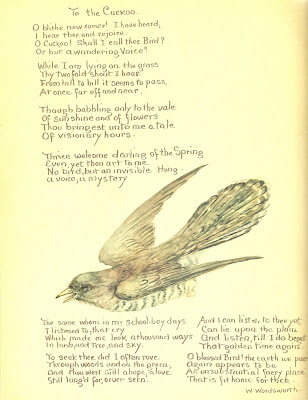 To the Cuckoo.
O blithe new-comer! I have heard,
I hear thee and rejoice.
O Cuckoo! Shall I call thee Bird?
Or but a wandering Voice?
While I am lying on the grass
Thy twofold shout I hear.
From hill to hill it seems to pass,
At once far off and near.
Though babbling only to the vale
Of sunshine and of flowers
Thou bringest unto me a tale
Of visionary hours.
Thrice welcome darling of the Spring
Even yet thou art to me
No bird, but an invisible thing -
a voice, a mystery
The same whom in my School-boy days
I listened to, that cry
Which made me look a thousand ways
In bush, and tree, and sky.
To seek thee did I often rove
Through woods and on the green,
And thou wert still a hope, a love
Still long'd for, never seen.
And I can listen to thee yet
Can lie upon the plain
And listen, till I do beget
That golden time again.
O blessed Bird! the earth we pace
Again appears to be
An unsubstantial faery place
That is fit home for Thee.
W. Wordsworth